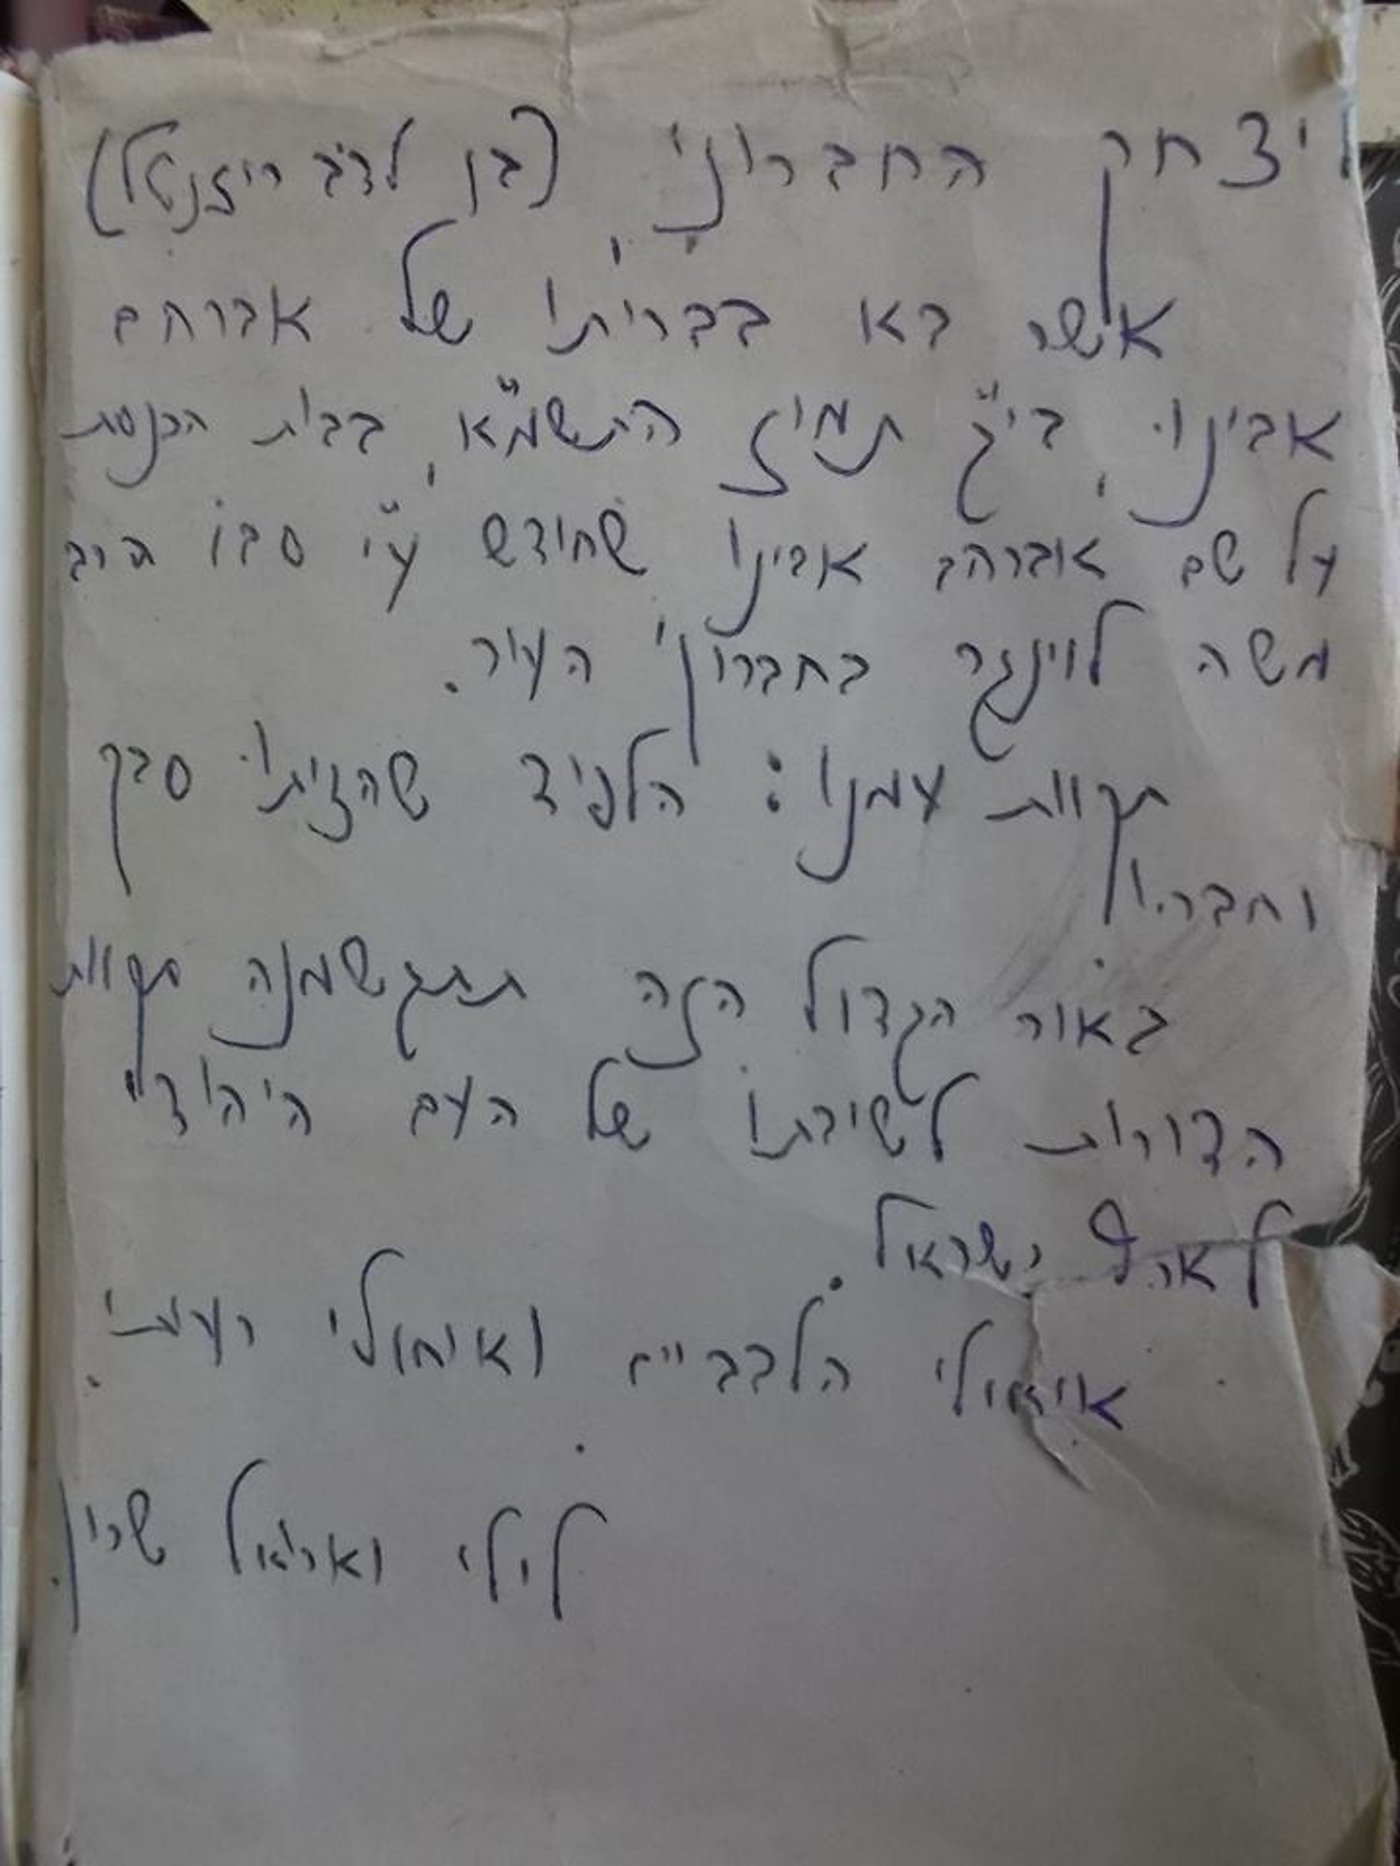 יצחק החברוני (בן לדב ריזנטל)
אשר בא בבריתו של אברהם
אבינו, בי"ג תמוז התשמ"א, בבית הכנסת
על שם אברהם אבינו שחודש ע"י סבו הרב
משה לוינגר בחברון העיר.
תקוות עמנו: הלפיד שהציתו סבך
וחבריו
באור הגדול הזה תתגשמנה תקוות
הדורות לשיבתו של העם היהודי
לארץ ישראל.
איחולי הלבביים ואיחולי רעיתי.
לילי ואריאל שרון.